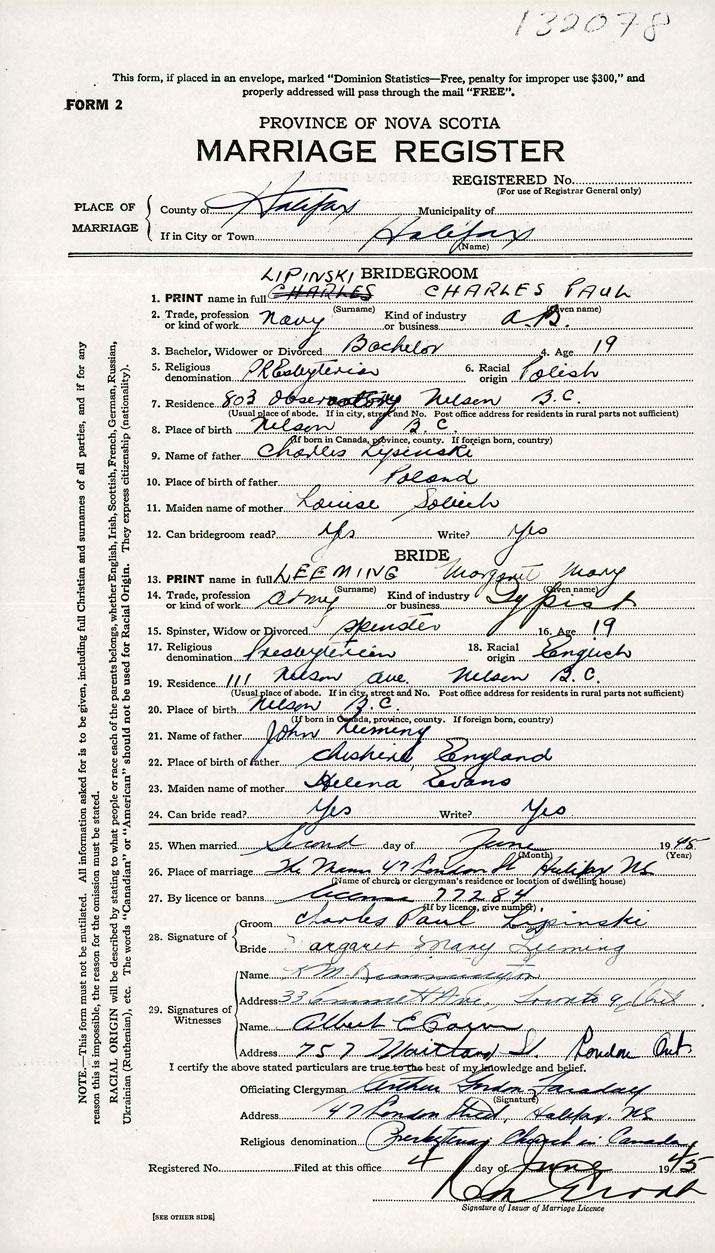 132078
This form, if placed in an envelope, marked "Dominion Statistics—Free, penalty for improper use $300," and
properly addressed will pass through the mail "FREE".
FORM 2
PROVINCE OF NOVA SCOTIA
MARRIAGE REGISTER
REGISTERED No.
(For use of Registrar General only)
PLACE OF MARRIAGE
County of Halifax Municipality of
If in City or Town Halifax
(Name)
LIPINSKI BRIDEGROOM
1. PRINT name in full CHARLES CHARLES PAUL
(Surname) (Given name)
2. Trade, profession or kind of work Navy Kind of industry or business A.B.
3. Bachelor, Widower or Divorced Bachelor 4. Age 19
5. Religious denomination PREsbyterian 6. Racial origin Polish
7. Residence 803 Observatory Nelson B.C.
(Usual place of abode. If in city, street and No. Post office address for residents in rural parts not sufficient)
8. Place of birth Nelson B.C.
(If born in Canada, province, county. If foreign born, country)
9. Name of father Charles Lypinski
10. Place of birth of father Poland
11. Maiden name of mother Louise
12. Can bridegroom read? Yes Write? Yes
BRIDE
13. PRINT name in full LEEMING Margaret Mary
(Surname) (Given name)
14. Trade, profession or kind of work Army Kind of industry or business Typist
15. Spinster, Widow or Divorced Spinster 16. Age 19
17. Religious denomination Presbyterian 18. Racial origin English
19. Residence 111 Nelson ave. Nelson B.C.
(Usual place of abode. If in city, street and No. Post office address for residents in rural parts not sufficient)
20. Place of birth Nelson B.C.
(If born in Canada, province, county. If foreign born, country)
21. Name of father John Leeming
22. Place of birth of father Cheshire, England
23. Maiden name of mother Helena Evans
24. Can bride read? Yes Write? Yes
25. When married Second day of June 1945
(Month) (Year)
26. Place of marriage The Manse 47 London St Halifax NS
(Name of church or clergyman's residence or location of dwelling house)
27. By licence or banns License 77284
(If by licence, give number)
28. Signature of
Groom Charles Paul Lypinski
Bride Margaret Mary Leeming
29. Signatures of Witnesses
Name K M
Address 33 Ave, Toronto 9, Ont.
Name Albert E
Address 757 Maitland St. London Ont.
I certify the above stated particulars are true to the best of my knowledge and belief.
Officiating Clergyman Arthur Gordon Faraday
(Signature)
Address 47 London Street, Halifax. NS
Religious denomination Presbyterian Church in Canada
Registered No. Filed at this office 4 day of June 1945
Signature of Issuer of Marriage Licence
[SEE OTHER SIDE]
NOTE.—This form must not be mutilated. All information asked for is to be given, including full Christian and surnames of all parties, and if for any
reason this is impossible, the reason for the omission must be stated.
RACIAL ORIGIN will be described by stating to what people or race each of the parents belongs, whether English, Irish, Scottish, French, German, Russian,
Ukrainian (Ruthenian), etc. The words "Canadian" or "American" should not be used for Racial Origin. They express citizenship (nationality).